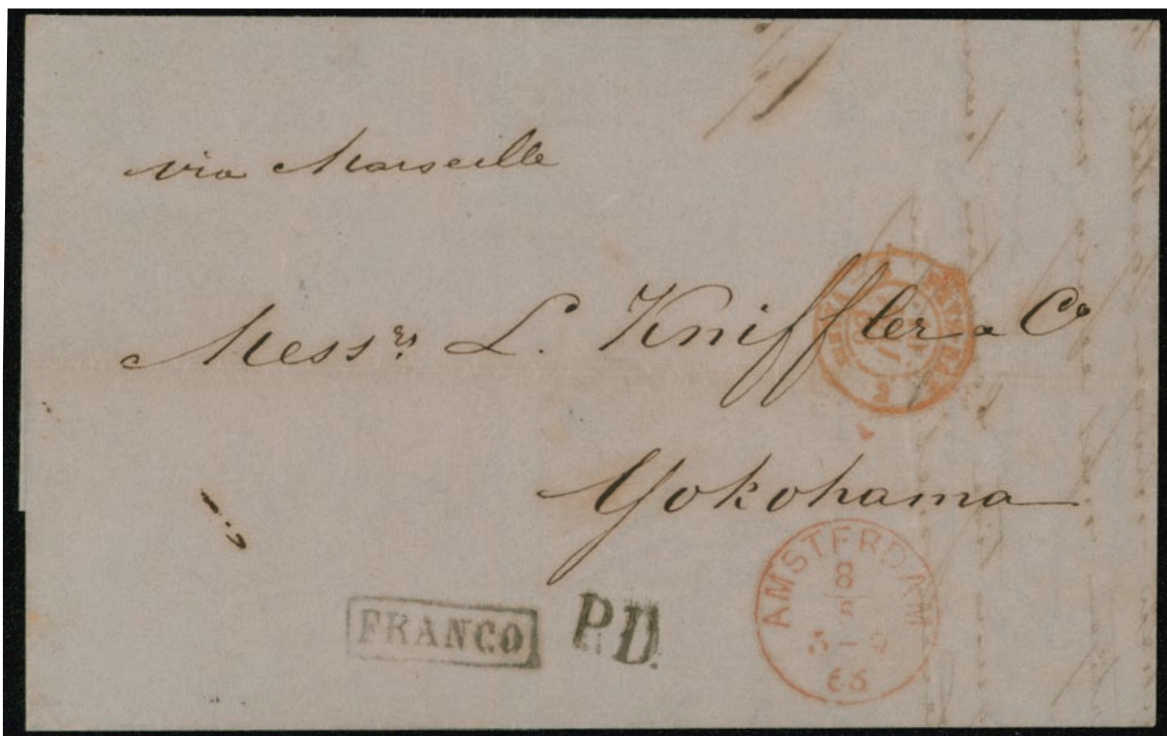 via Marseille
Mess.rs L. Kniffler & Co
Yokohama
FRANCO
P.D.
AMSTERDAM
8
66